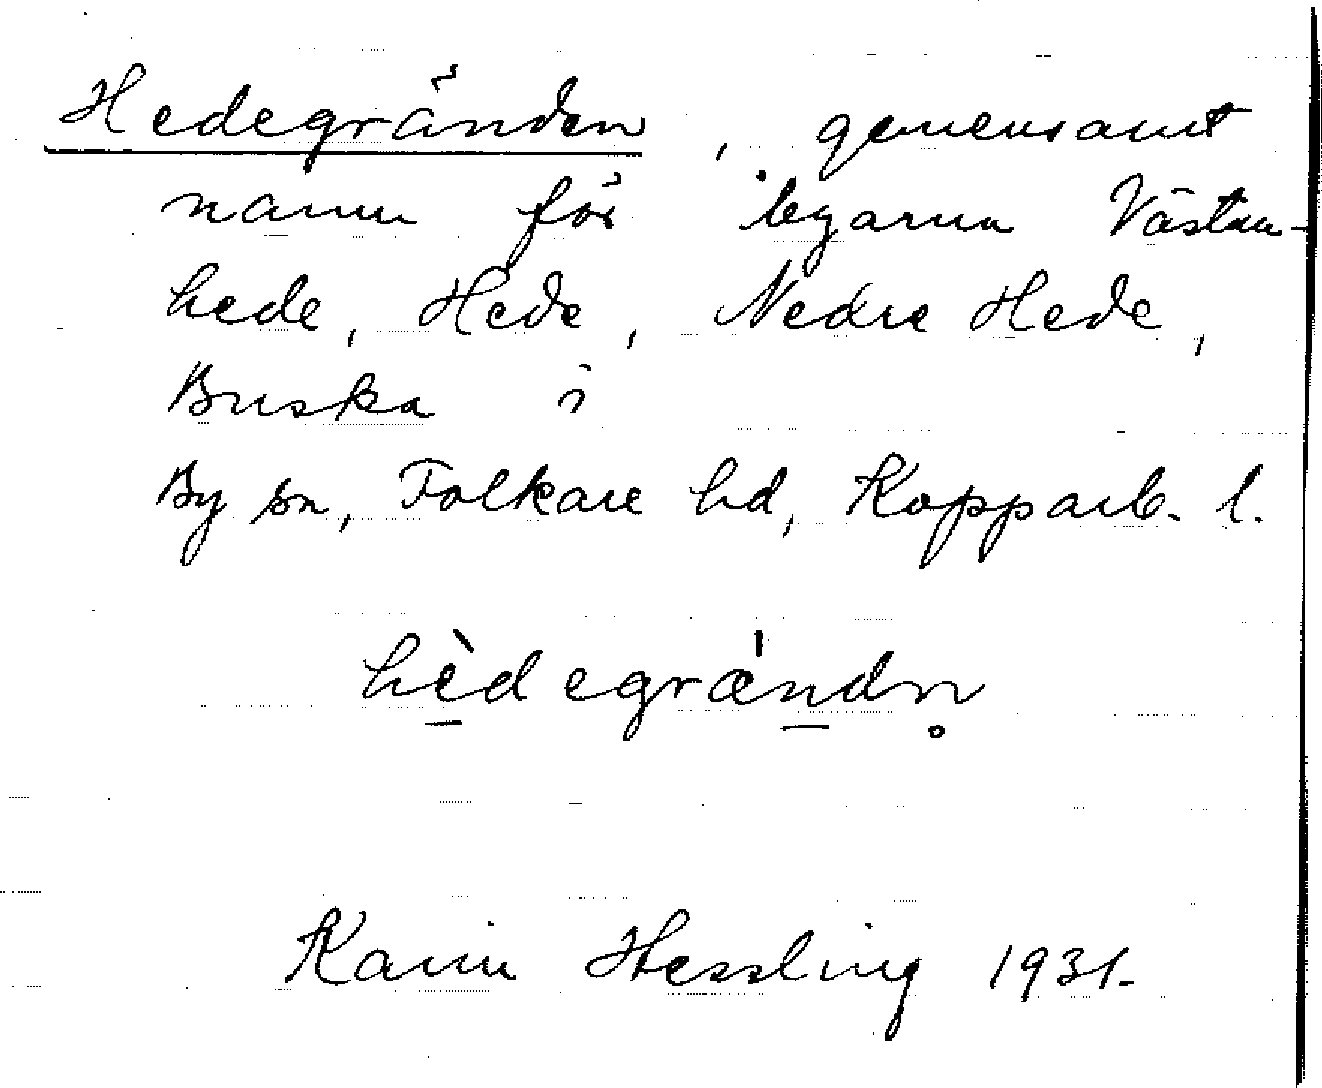 Hedegränden, gemensamt
namn för byarna Västan-
hede, Hede, Nedre Hede,
Buska i
By sn, Folkare hd, Kopparb. l.
hèdegrændn̥
Karin Hessling 1931.